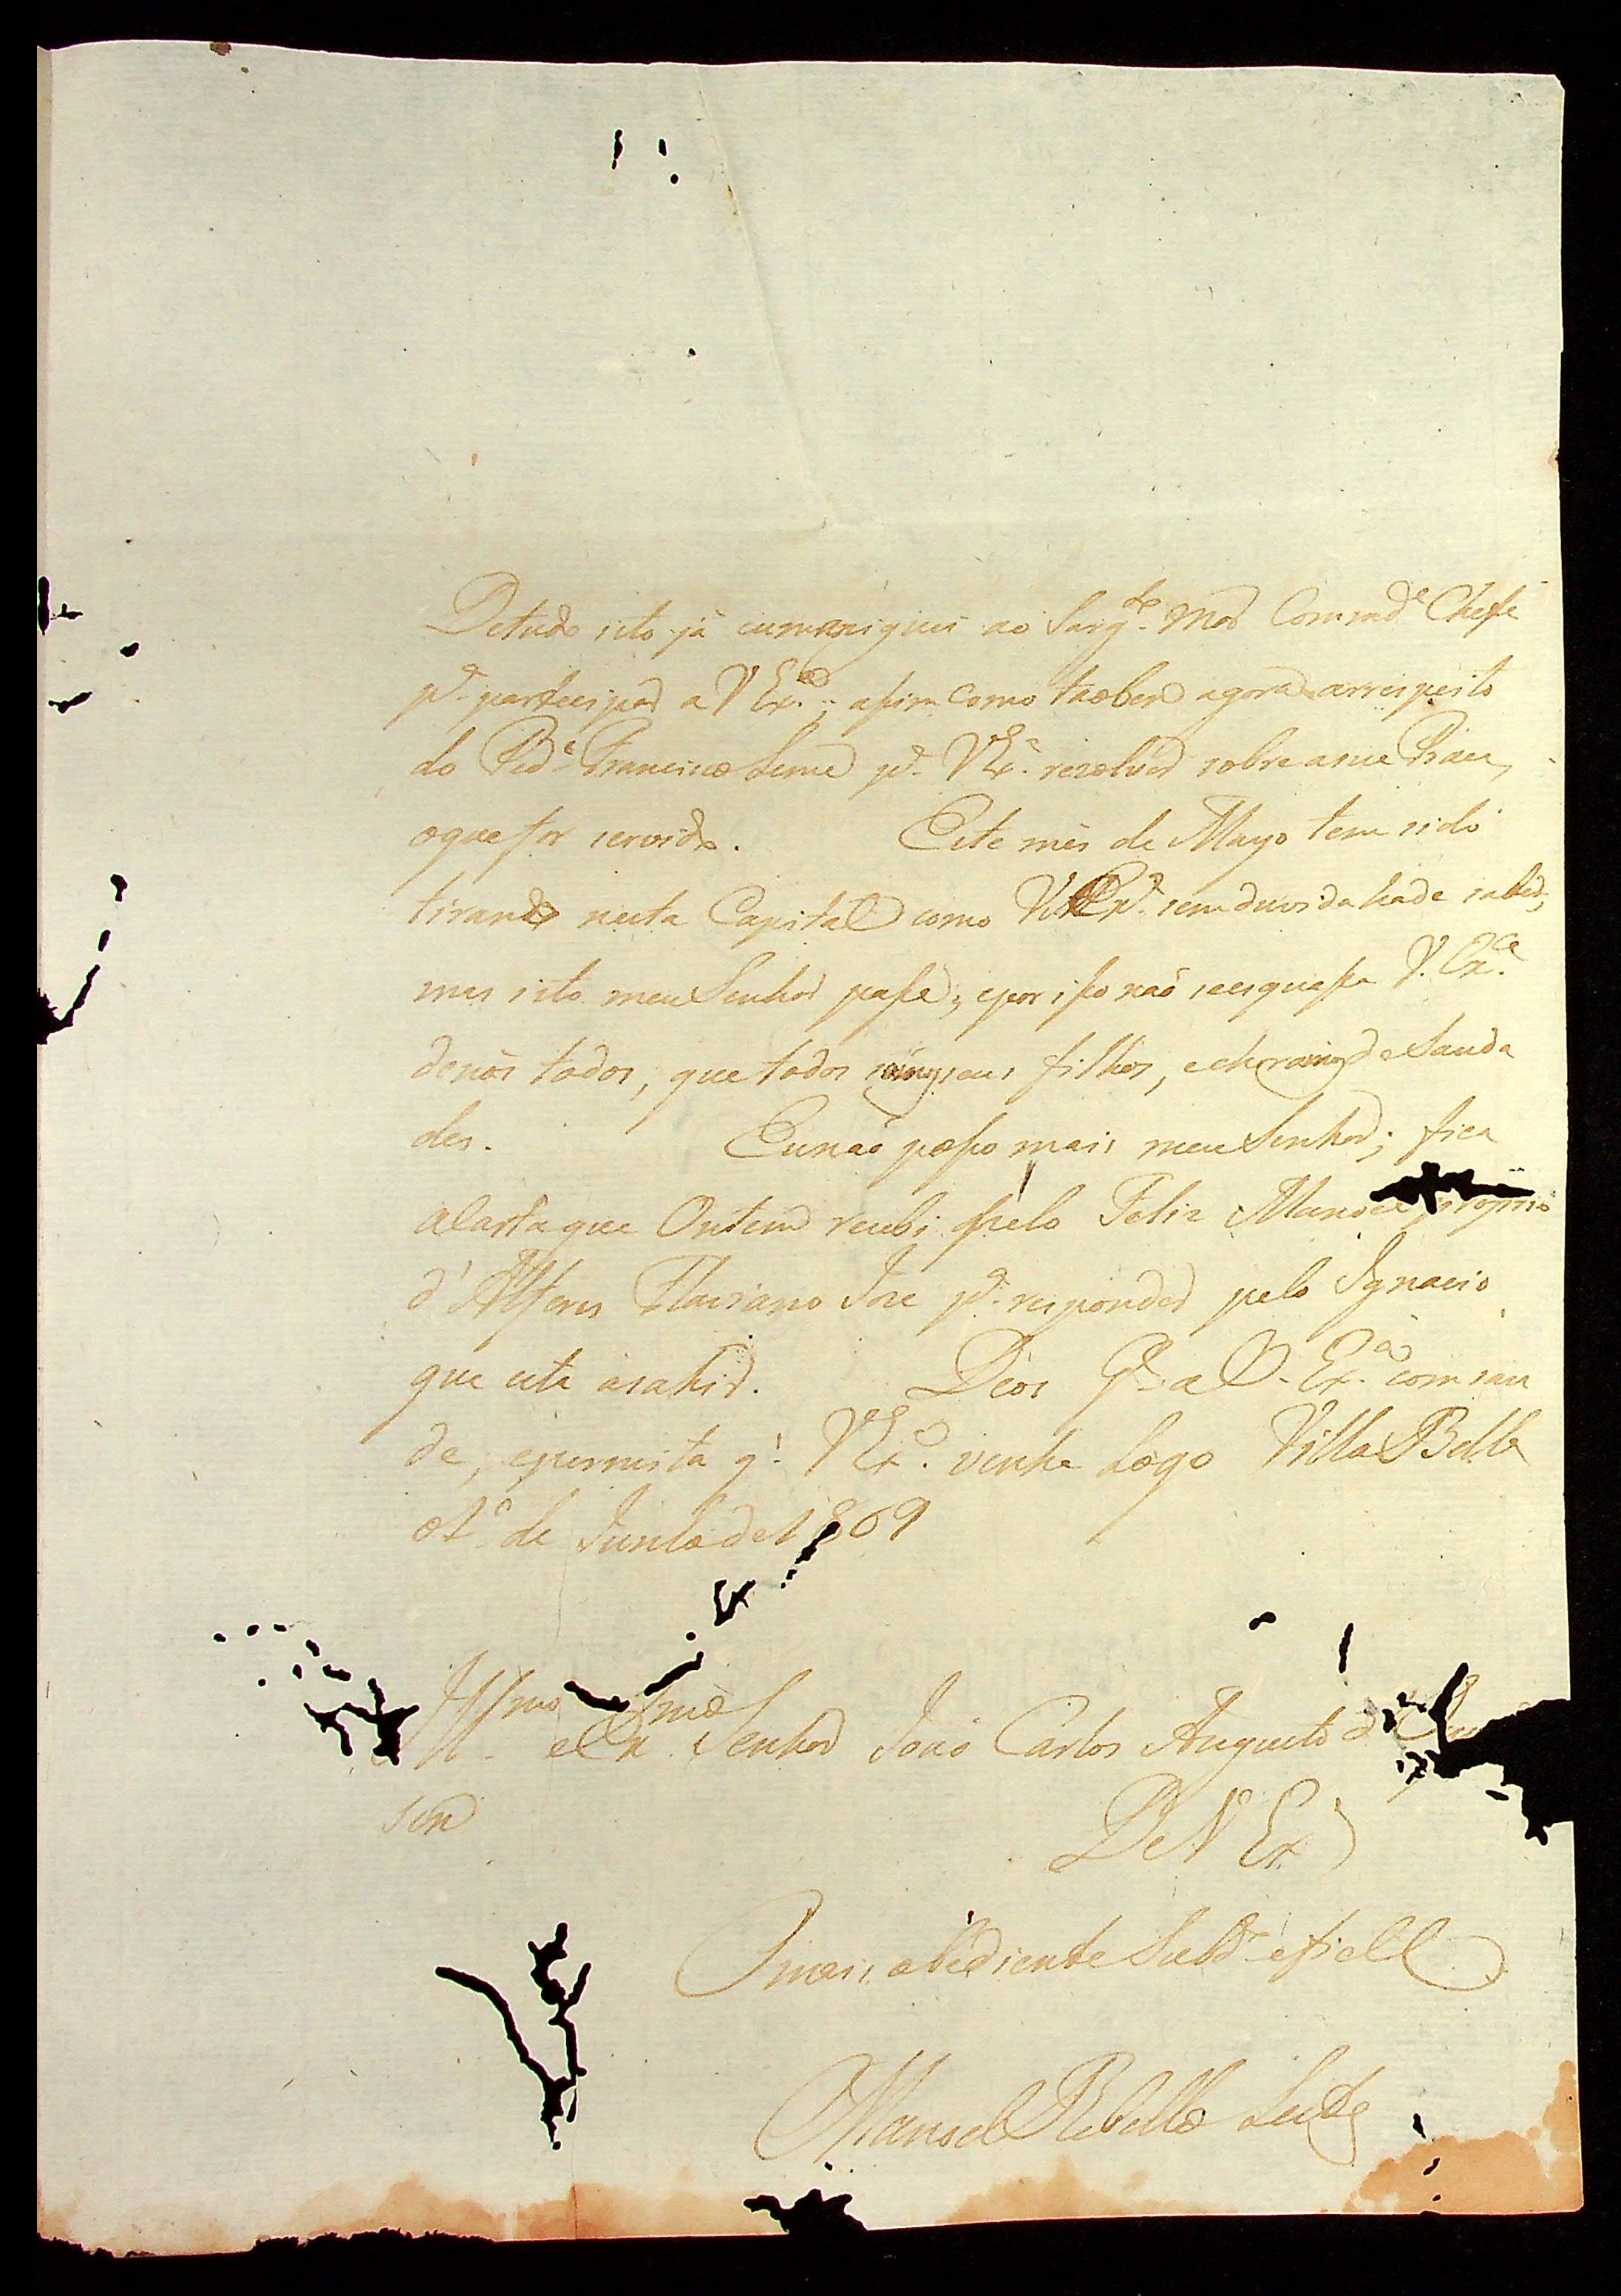 De tudo isto já cumoniquei ao Sarg.to Mor Commd.e Chefe
p.a partecipar a V Ex.ca; asim como taobem agora arrespeito
do Ped.e Francisco Leme p.a V Ex.a rezolver sobre a sua
o que for servido. Este mês de Mayo tem sido
tirano nesta Capital como V. Ex.a sem duvida hade saber,
mas isto meu Senhor passe; e por isso naõ se esquessa V. Ex.ca
de nós todos, que todos somos seus filhos, e choramos de Sauda
des. Eu naõ posso mais meu Senhor; fica
a Carta que Ontem recebi pelo Felix Manoel proprio
d'Alferes Floriano Joze p.a responder pelo Ignacio
que esta a sahir. Deos G.e a V. Ex.ca com sau
de, e permita q' V Ex.ca venha Logo Villa Bella
o 1.o de Junho de 1809
Ill.mo e Ex.mo Senhor Joaõ Carlos Augusto d'
sen
De V Ex.
O mais obediente Subd.o e fiel
Manoel Rebello Leite